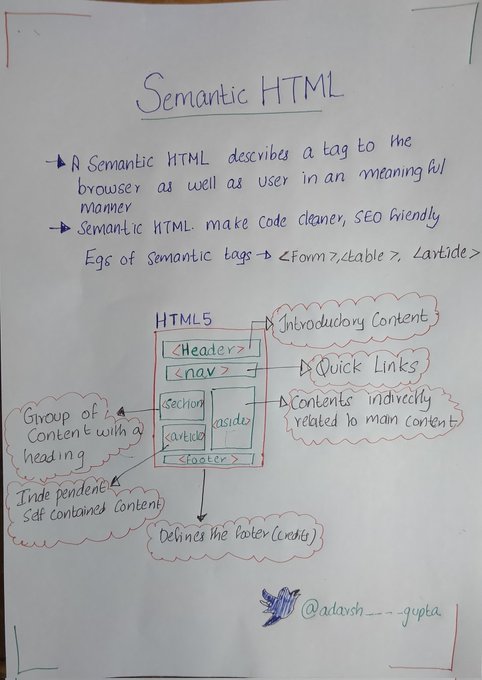 Semantic HTML
A Semantic HTML describes a tag to the
browser as well as user in an meaningful
manner
Semantic HTML. make code cleaner, SEO friendly
Egs of semantic tags → <form>,<table>, <article>
HTML5
Introductory Content
<Header>
<nav>
Quick Links
<section>
<aside>
<article>
<footer>
Contents indirectly
related to main content
Group of
Content with a
heading
Independent
Self contained content
Defines the footer (credits)
@adarsh____gupta